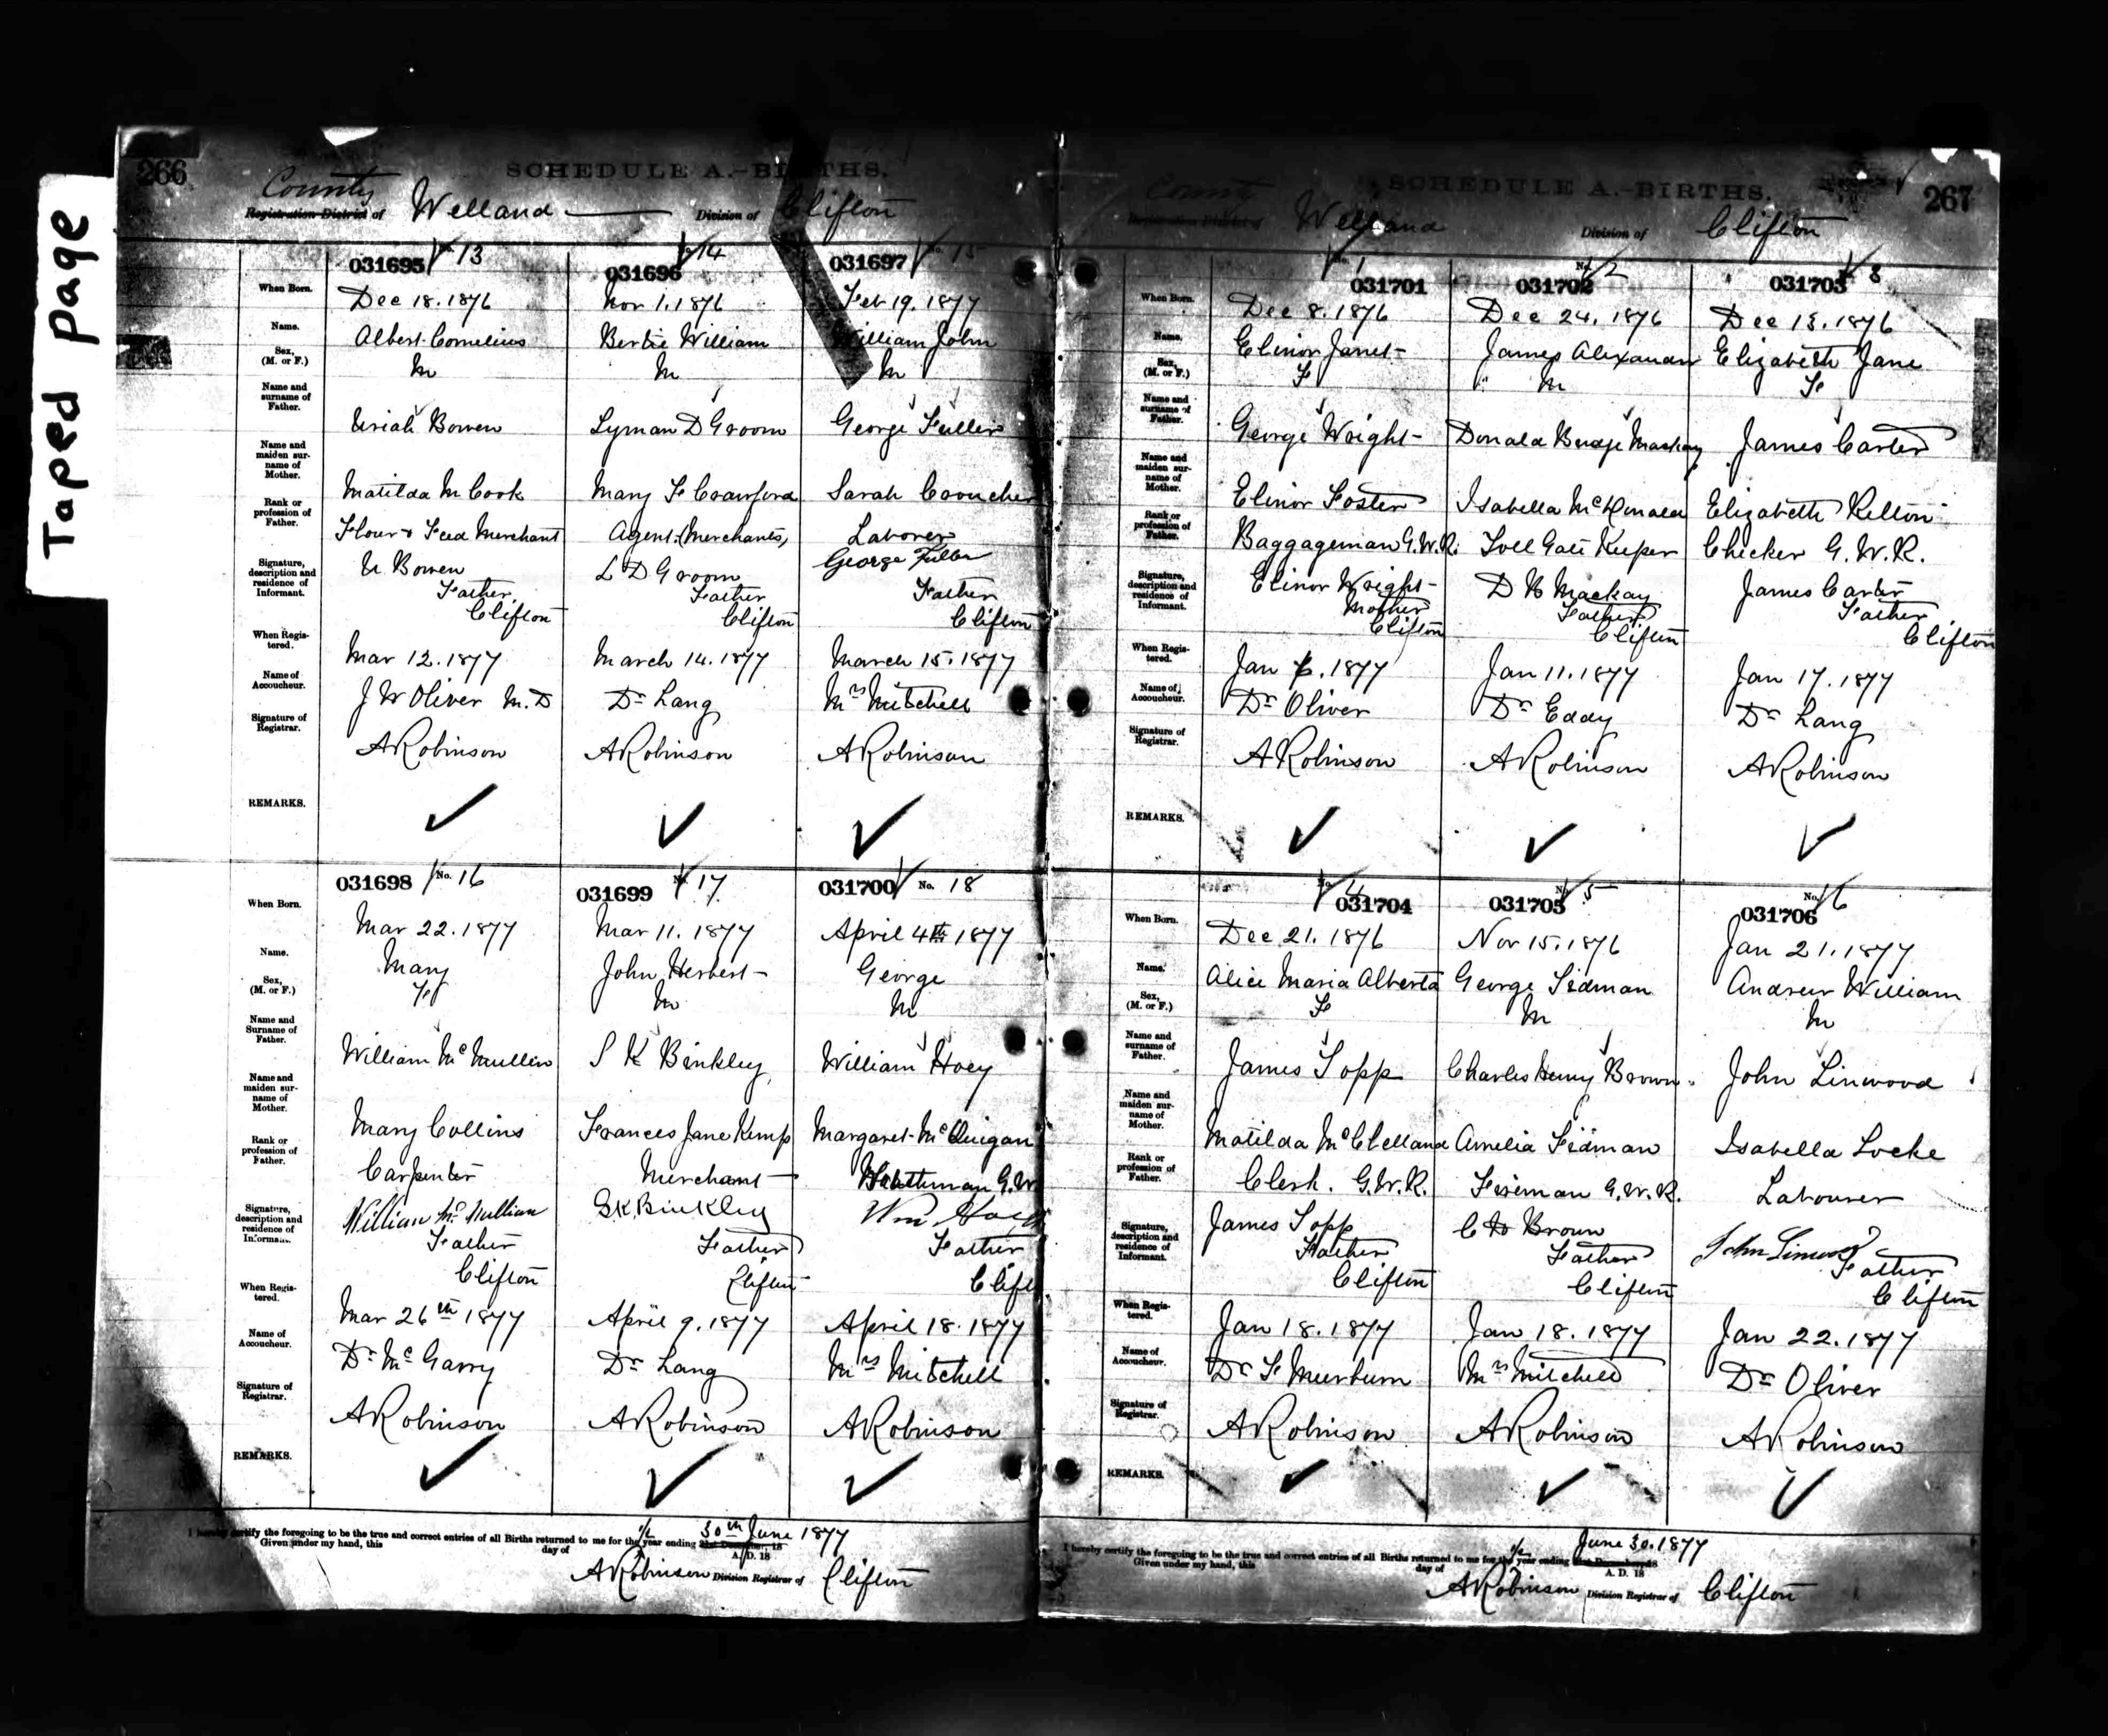 Taped page
266
SCHEDULE A.-BIRTHS.
County
Registration District of Welland Division of Clifton
031695 No. 13
031696 14
031697 No. 15
When Born.
Dec 18. 1876
Nov 1. 1876
Feb 19. 1877
Name.
Albert Cornelius
Bertie William
William John
Sex, (M. or F.)
M
M
M
Name and surname of Father.
Uriah Bowen
Lyman D Groom
George Fuller
Name and maiden surname of Mother.
Matilda M Cook
Mary F Crawford
Sarah Croucher
Rank or profession of Father.
Flour & Feed Merchant
Agent (Merchants)
Laborer
Signature, description and residence of Informant.
U Bowen
Father
Clifton
L D Groom
Father
Clifton
George Fuller
Father
Clifton
When Registered.
Mar 12. 1877
March 14. 1877
March 15. 1877
Name of Accoucheur.
J W Oliver M.D
Dr Lang
Mrs Mitchell
Signature of Registrar.
A Robinson
A Robinson
A Robinson
REMARKS.
031698 No. 16
031699 17
031700 No. 18
When Born.
Mar 22. 1877
Mar 11. 1877
April 4th 1877
Name.
Mary
John Herbert
George
Sex, (M. or F.)
F
M
M
Name and Surname of Father.
William McMullin
S K Binkley
William Hoey
Name and maiden surname of Mother.
Mary Collins
Frances Jane Kemp
Margaret McGuigan
Rank or profession of Father.
Carpenter
Merchant
G.W
Signature, description and residence of Informant.
William McMullian
Father
Clifton
S K Binkley
Father
Clifton
Wm Hoey
Father
Clift
When Registered.
Mar 26th 1877
April 9. 1877
April 18. 1877
Name of Accoucheur.
Dr McGarry
Dr Lang
Mrs Mitchell
Signature of Registrar.
A Robinson
A Robinson
A Robinson
REMARKS.
I hereby certify the foregoing to be the true and correct entries of all Births returned to me for the 1/2 year ending 30th June 1877
Given under my hand, this day of A.D. 18
A Robinson Division Registrar of Clifton
267
SCHEDULE A.-BIRTHS.
County
Welland Division of Clifton
No. 1 031701
No. 2 031702
031703 3
When Born.
Dec 8. 1876
Dec 24. 1876
Dec 13. 1876
Name.
Elinor Janet
James Alexander
Elizabeth Jane
Sex, (M. or F.)
F
M
F
Name and surname of Father.
George Wright
Donald Budge Mackay
James Carter
Name and maiden surname of Mother.
Elinor Foster
Isabella McDonald
Elizabeth Kelton
Rank or profession of Father.
Baggageman G.W.R.
Toll Gate Keeper
Checker G.W.R.
Signature, description and residence of Informant.
Elinor Wright
Mother
Clifton
D B Mackay
Father
Clifton
James Carter
Father
Clifton
When Registered.
Jan 1877
Jan 11. 1877
Jan 17. 1877
Name of Accoucheur.
Dr Oliver
Dr Eddy
Dr Lang
Signature of Registrar.
A Robinson
A Robinson
A Robinson
REMARKS.
No. 4 031704
031705 No. 5
No. 6 031706
When Born.
Dec 21. 1876
Nov 15. 1876
Jan 21. 1877
Name.
Alice Maria Alberta
George Sidman
Andrew William
Sex, (M. or F.)
F
M
M
Name and surname of Father.
James Topp
Charles Henry Brown
John Linwood
Name and maiden surname of Mother.
Matilda McClelland
Amelia Sidman
Isabella Locke
Rank or profession of Father.
Clerk. G.W.R.
Fireman G.W.R.
Labourer
Signature, description and residence of Informant.
James Topp
Father
Clifton
C H Brown
Father
Clifton
John Linwood
Father
Clifton
When Registered.
Jan 18. 1877
Jan 18. 1877
Jan 22. 1877
Name of Accoucheur.
Dr F
Mrs Mitchell
Dr Oliver
Signature of Registrar.
A Robinson
A Robinson
A Robinson
REMARKS.
I hereby certify the foregoing to be the true and correct entries of all Births returned to me for the 1/2 year ending June 30. 1877
Given under my hand, this day of A. D. 18
A Robinson Division Registrar of Clifton